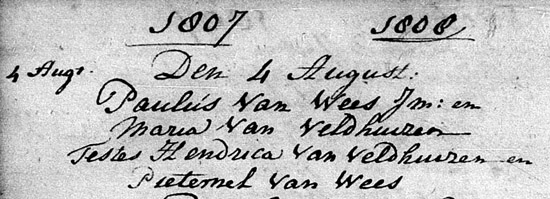 1807 1808
4 Augt. Den 4 August:
Paulus Van Wees Jm: en
Maria Van Veldhuizen
Testes Hendrica Van Veldhuizen en
Pieternel Van Wees